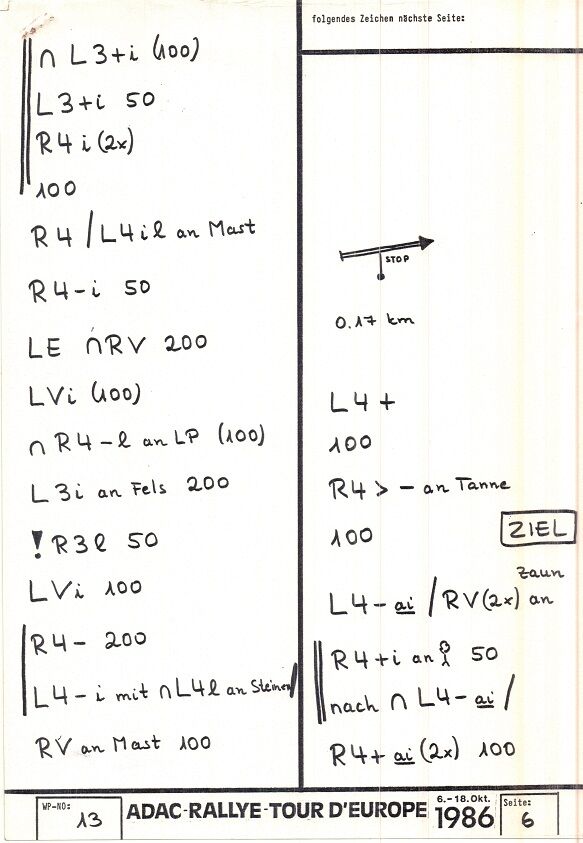 ∩ L3+i (100)
L3+i 50
R4 i (2x)
100
R4 / L4il an Mast
R4-i 50
LE ∩RV 200
LVi (100)
∩ R4-l an LP (100)
L3i an Fels 200
! R3l 50
LVi 100
R4- 200
L4-i mit ∩L4l an Steinen /
RV an Mast 100
folgendes Zeichen nächste Seite:
STOP
0.17 km
L4+
100
R4 > - an Tanne
100
ZIEL
Zaun
L4- ai / RV (2x) an
R4+i an 50
nach ∩ L4- ai /
R4+ ai (2x) 100
WP-NO: 13
ADAC-RALLYE-TOUR D'EUROPE 6.-18.Okt. 1986
Seite: 6